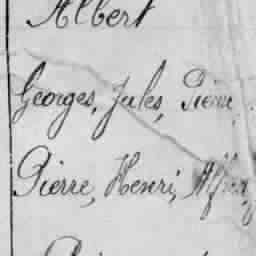 Albert
Georges, Jules, Pierre,
Pierre, Henri, Alfred,